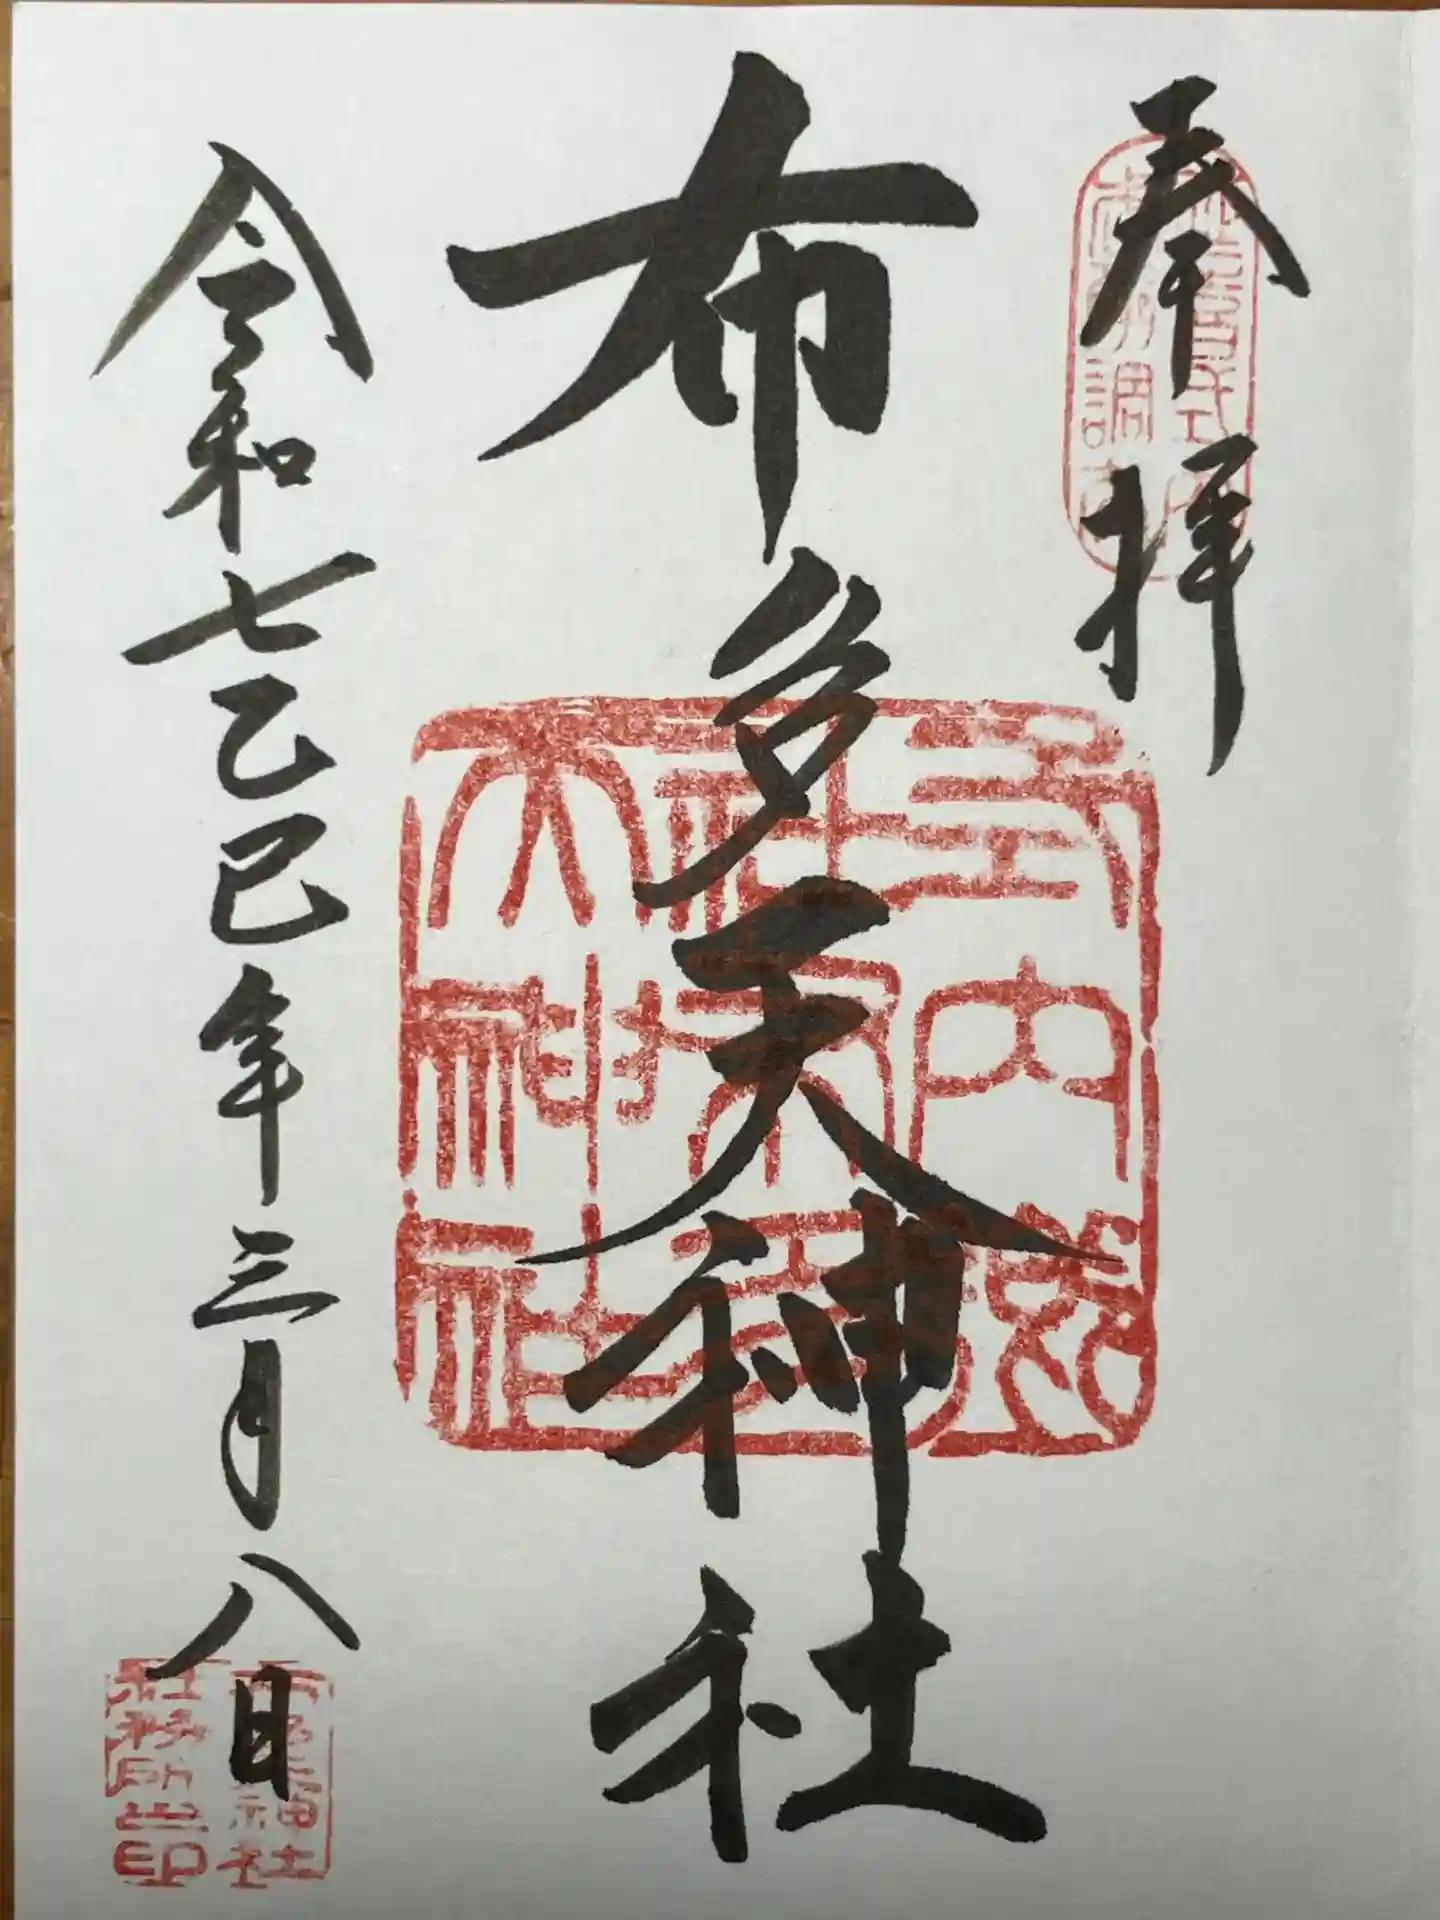 奉拝
延喜式内
布多天神社
令和七乙巳年三月八日
布多天神社
社務所之印